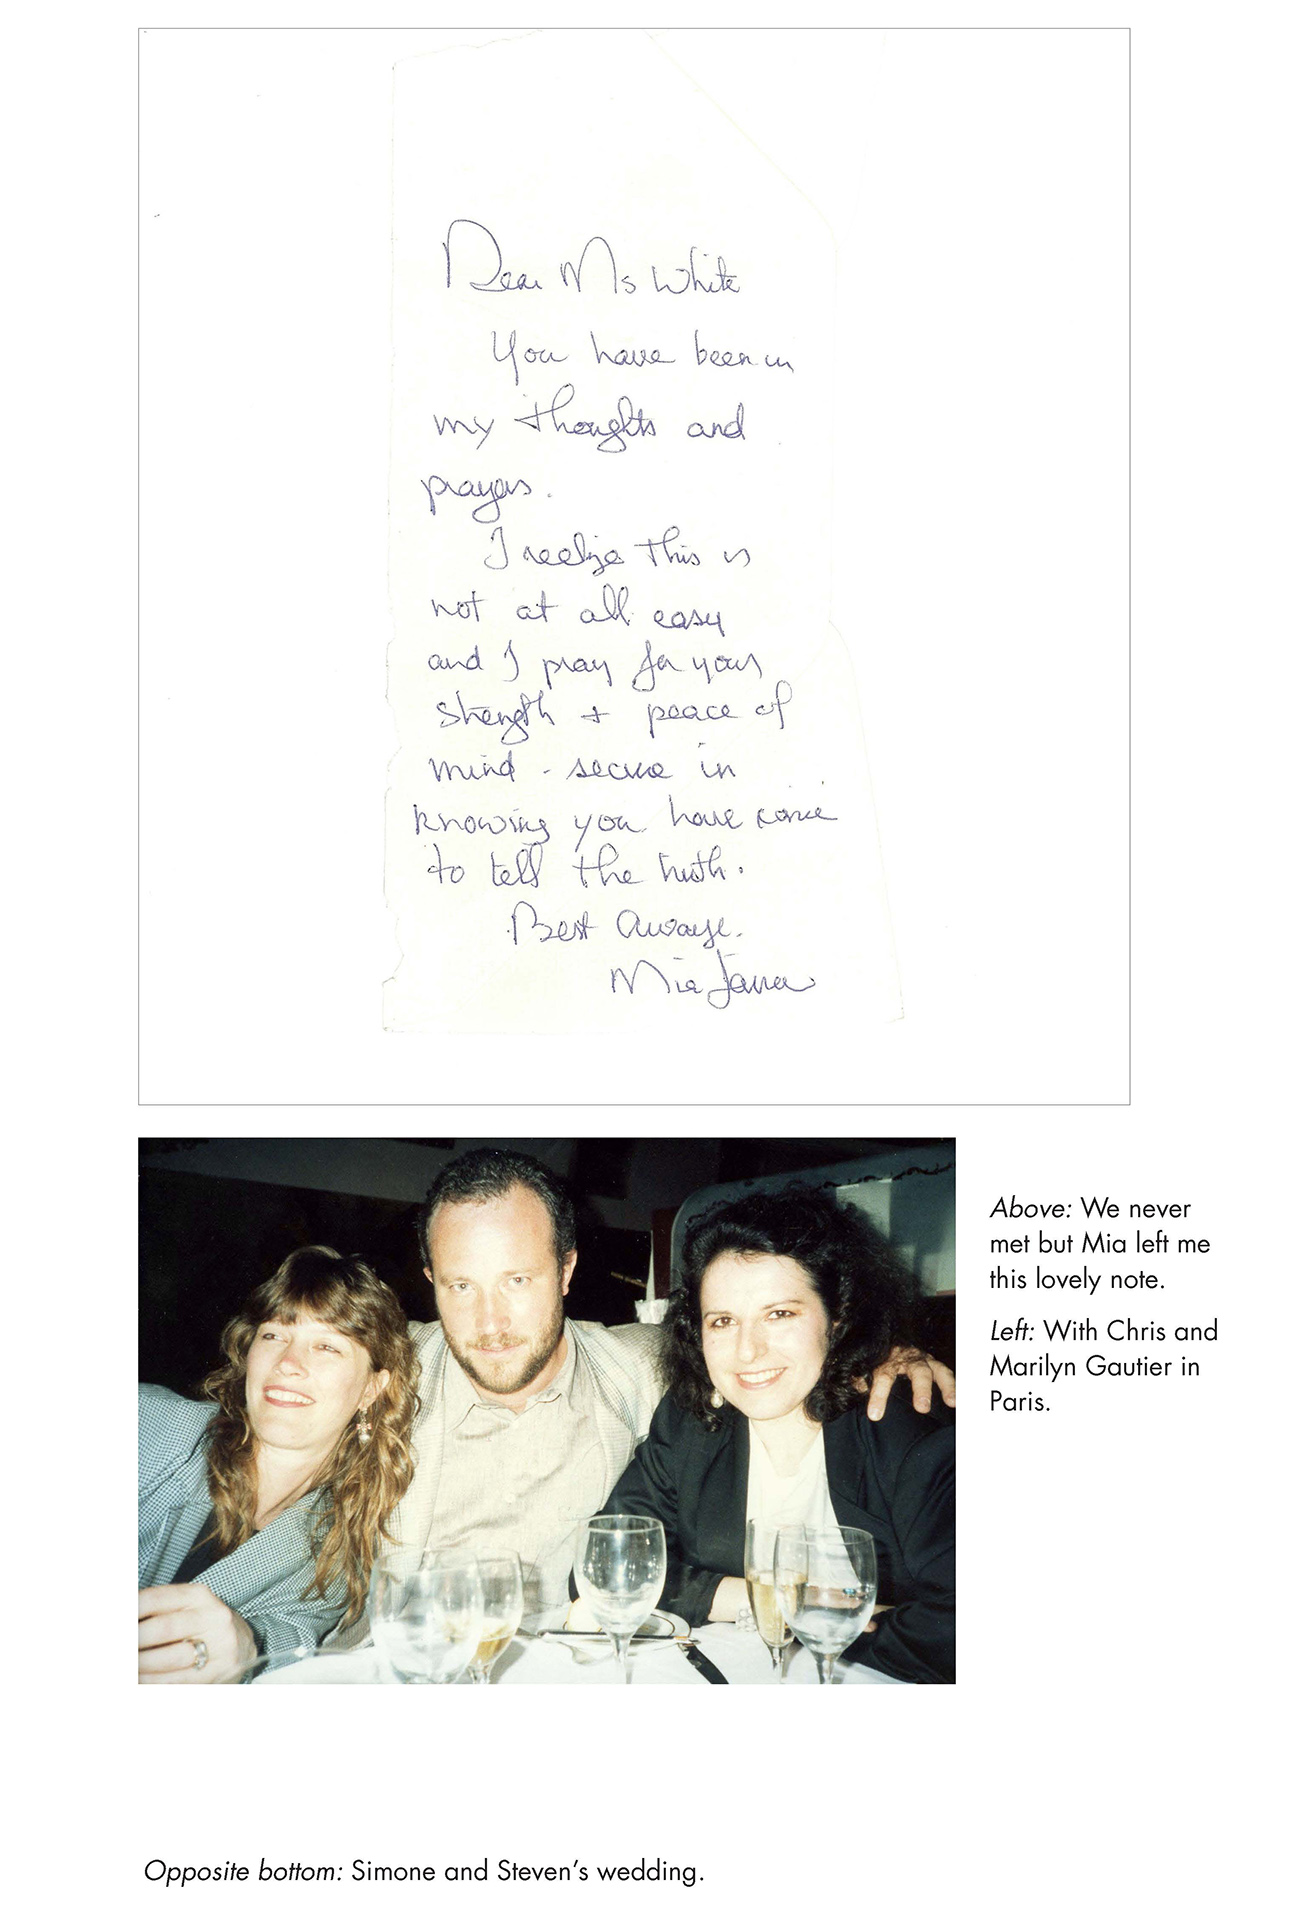 Dear Ms White
You have been in
my thoughts and
prayers.
I realize this is
not at all easy
and I pray for your
strength + peace of
mind - secure in
knowing you have come
to tell the truth.
Best Always.
Mia Farrow
Above: We never
met but Mia left me
this lovely note.
Left: With Chris and
Marilyn Gautier in
Paris.
Opposite bottom: Simone and Steven's wedding.